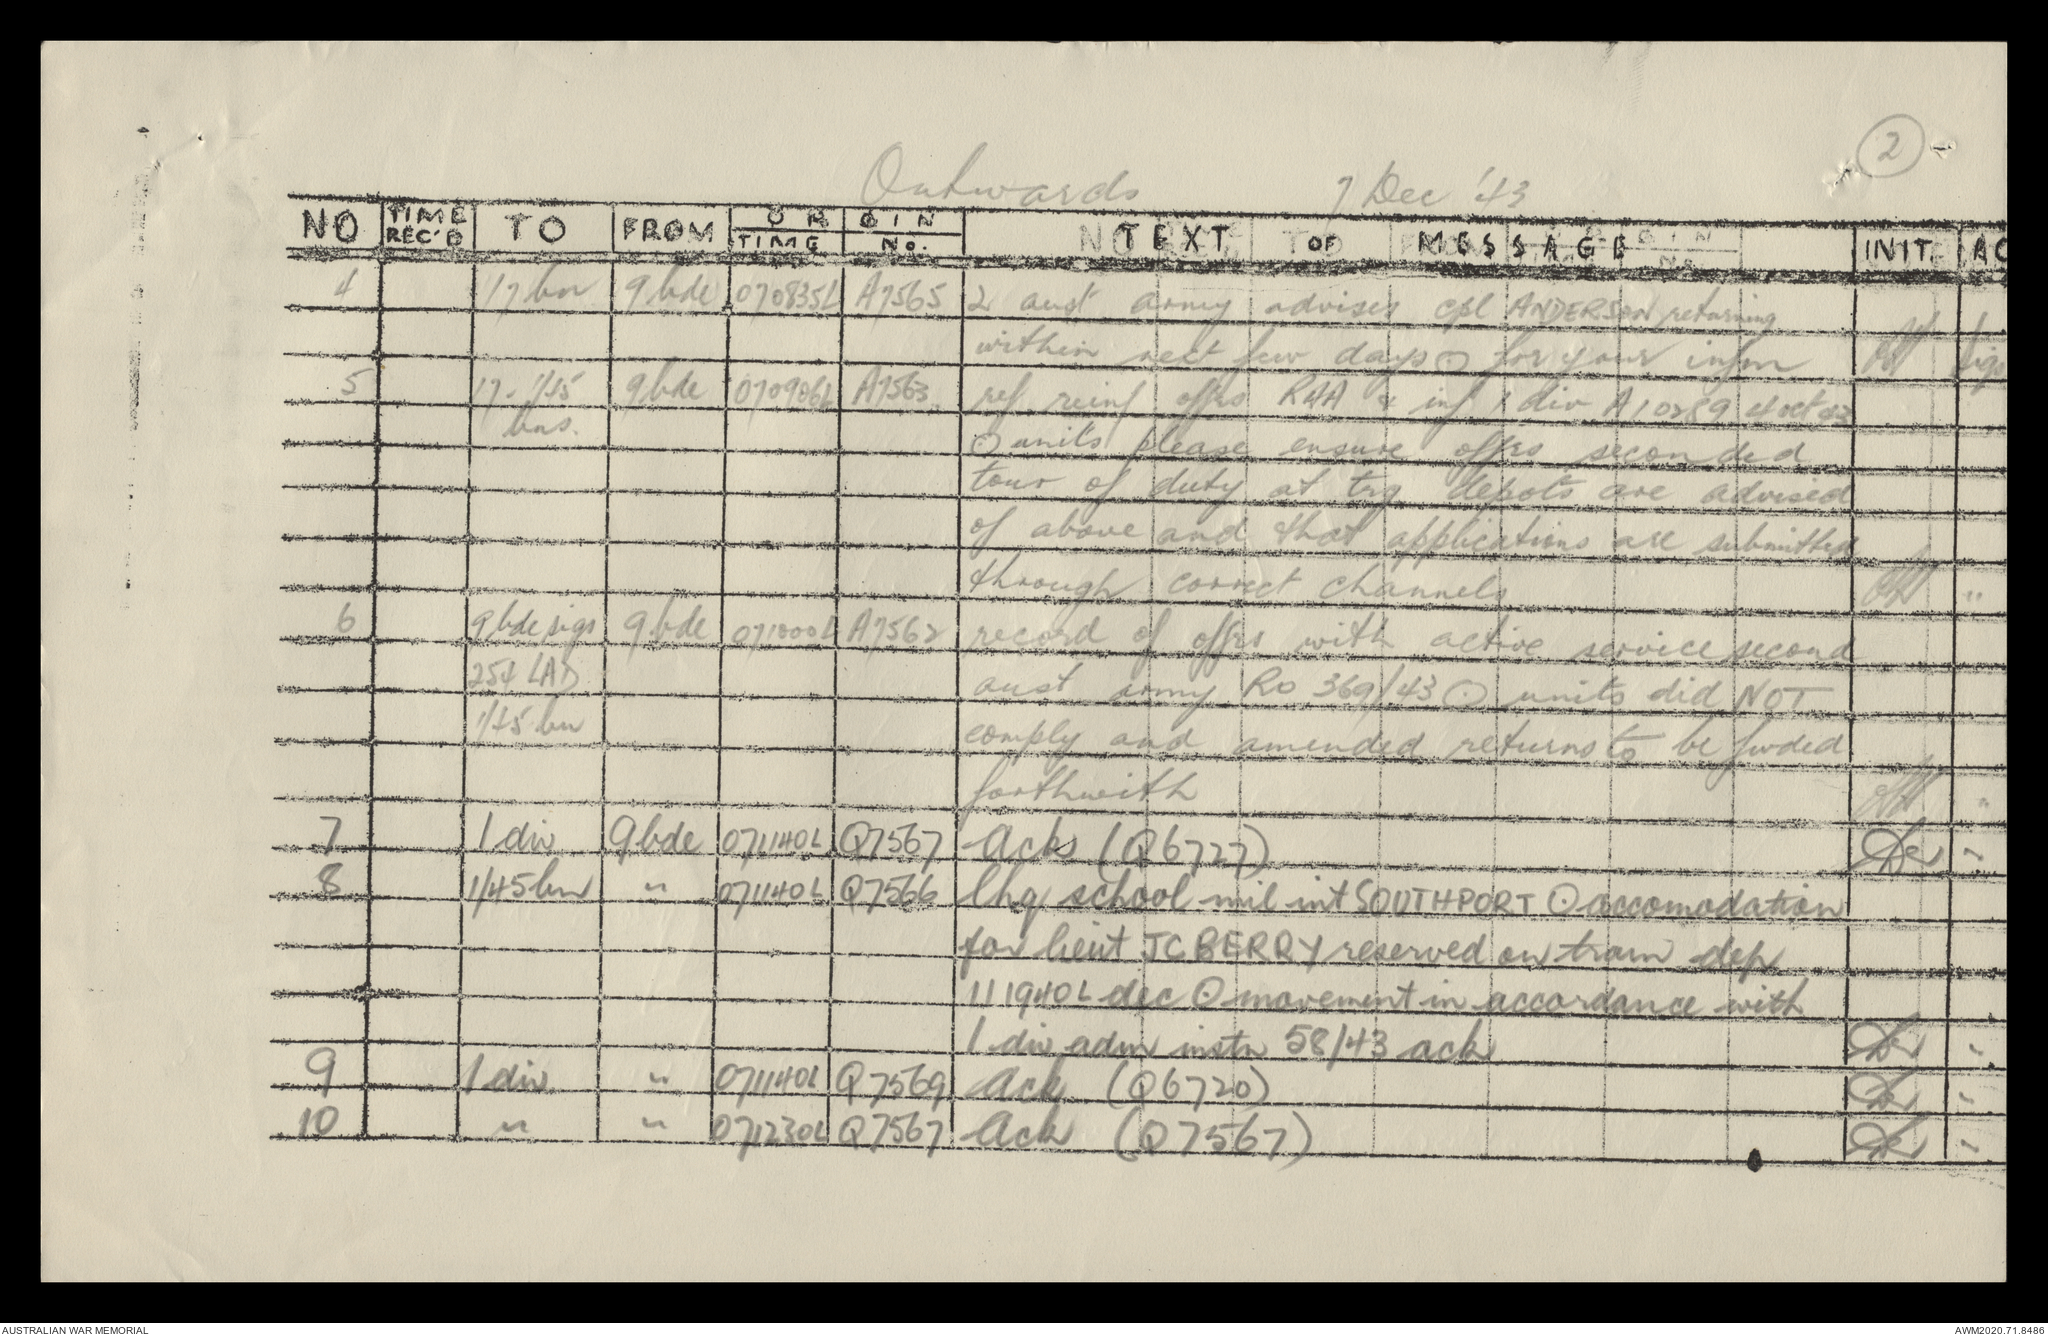 2
Outwards 7 Dec '43
NO TIME REC'D TO FROM ORIGIN TIME No. TEXT OF MESSAGE INIT. AC
4 17 bn 9 bde 070835L A7565 2 aust army advises cpl ANDERSON returning
within next few days ⊙ for your infm sigs
5 17 - 1/45 9 bde 070906L A7563 ref reinf offrs RAA & inf 1 div A10289 4 oct 43
bns. ⊙ units please ensure offrs seconded
tour of duty at trg depots are advised
of above and that applications are submitted
through correct channels "
6 9 bde sigs 9 bde 071000L A7562 record of offrs with active service second
254 LAD aust army RO 369/43 ⊙ units did NOT
1/45 bn comply and amended returns to be fwded
forthwith "
7 1 div 9 bde 071140L Q7567 Ack (Q6727) "
8 1/45 bn " 071140L Q7566 lhq school mil int SOUTHPORT ⊙ accomodation
for lieut JC BERRY reserved on train dep
111940L dec ⊙ movement in accordance with
1 div adm instn 58/43 ack "
9 1 div " 071140L Q7569 Ack (Q6720) "
10 " " 071230L Q7567 Ack (Q7567) "
AUSTRALIAN WAR MEMORIAL AWM2020.71.8486